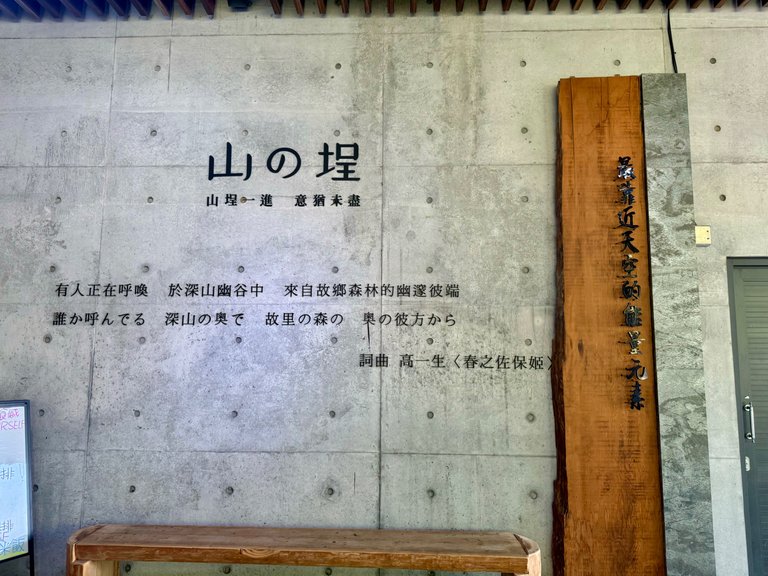 山の埕
山埕一進 意猶未盡
有人正在呼喚 於深山幽谷中 來自故鄉森林的幽邃彼端
誰か呼んでる 深山の奥で 故里の森の 奥の彼方から
詞曲 高一生〈春之佐保姬〉
最靠近天空的能量元素
RSELF
排!
排
米飯